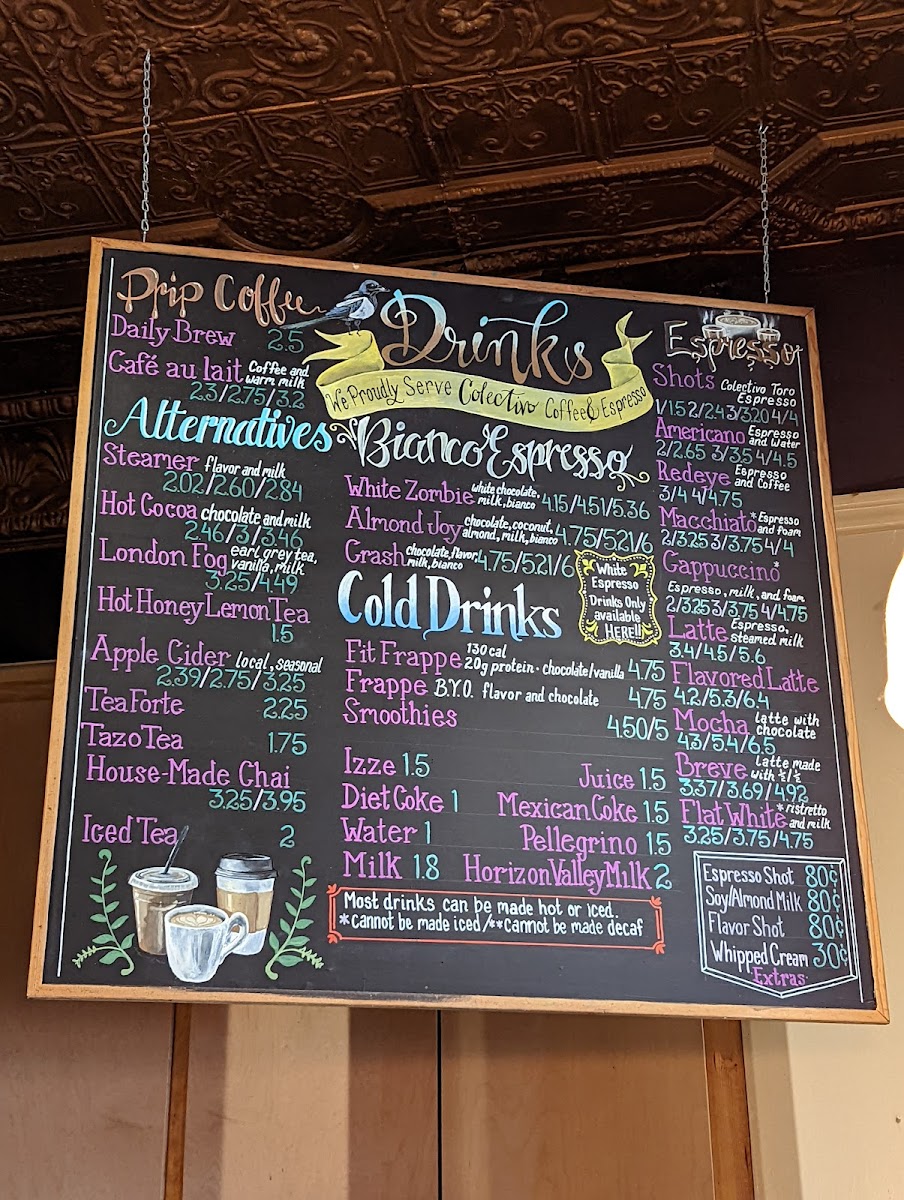 Drip Coffee
Daily Brew 2.5
Café au lait Coffee and
warm milk
2.3/2.75/3.2
Alternatives
Steamer flavor and milk
2.02/2.60/2.84
Hot Cocoa chocolate and milk
2.46/3/3.46
London Fog earl grey tea,
vanilla, milk
3.25/4.49
Hot Honey Lemon Tea
1.5
Apple Cider local, seasonal
2.39/2.75/3.25
Tea Forte 2.25
Tazo Tea 1.75
House-Made Chai
3.25/3.95
Iced Tea 2
Drinks
We Proudly Serve Colectivo Coffee & Espresso
Bianco Espresso
White Zombie white chocolate,
milk, bianco 4.15/4.51/5.36
Almond Joy chocolate, coconut,
almond, milk, bianco 4.75/5.21/6
Crash chocolate, flavor,
milk, bianco 4.75/5.21/6
White
Espresso
Drinks Only
available
HERE!!
Cold Drinks
Fit Frappe 130 cal
20g protein · chocolate/vanilla 4.75
Frappe B.Y.O. flavor and chocolate 4.75
Smoothies 4.50/5
Izze 1.5 Juice 1.5
Diet Coke 1 Mexican Coke 1.5
Water 1 Pellegrino 1.5
Milk 1.8 Horizon Valley Milk 2
Most drinks can be made hot or iced.
*cannot be made iced/**cannot be made decaf
Espresso
Shots Colectivo Toro
Espresso
1/1.5 2/2.4 3/3.20 4/4
Americano Espresso
and Water
2/2.65 3/3.5 4/4.5
Redeye Espresso
and Coffee
3/4 4/4.75
Macchiato* Espresso
and foam
2/3.25 3/3.75 4/4
Cappuccino*
Espresso, milk, and foam
2/3.25 3/3.75 4/4.75
Latte Espresso,
steamed milk
3.4/4.5/5.6
Flavored Latte
4.2/5.3/6.4
Mocha latte with
chocolate
4.3/5.4/6.5
Breve latte made
with ½/½
3.37/3.69/4.92
Flat White* ristretto
and milk
3.25/3.75/4.75
Espresso Shot 80¢
Soy/Almond Milk 80¢
Flavor Shot 80¢
Whipped Cream 30¢
Extras